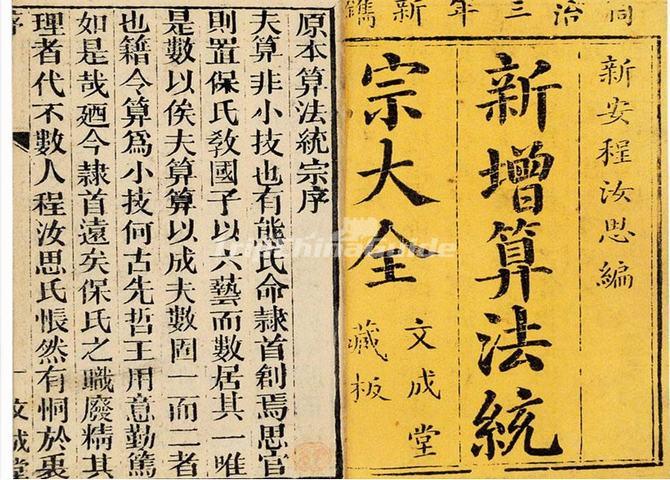 同治三年新鐫
新安程汝思編
新增算法統
宗大全
文成堂
藏板
原本算法統宗序
夫算非小技也有熊氏命隷首創焉思官
則置保氏敎國子以六藝而數居其一唯
是數以俟夫算算以成夫數固一而二者
也籍令算爲小技何古先哲王用意勤篤
如是哉廼今隷首遠矣保氏之職廢精其
理者代不數人程汝思氏悵然有恫於裏
序 一 文成堂